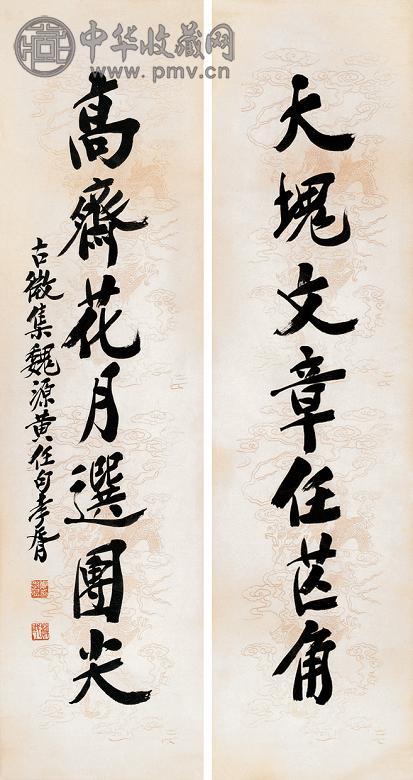 中华收藏网
www.pmv.cn
大塊文章任芒角
高齋花月選團尖
古微集魏源黃任句孝胥